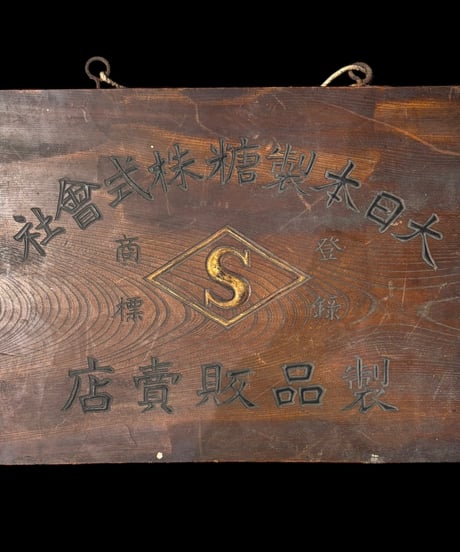 大日本製糖株式會社
登錄
S
商標
製品販賣店